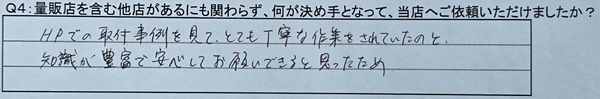 Q4：量販店を含む他店があるにも関わらず、何が決め手となって、当店へご依頼いただけましたか？
HPでの取付事例を見て、とても丁寧な作業をされていたのと、
知識が豊富で安心してお願いできると思ったため